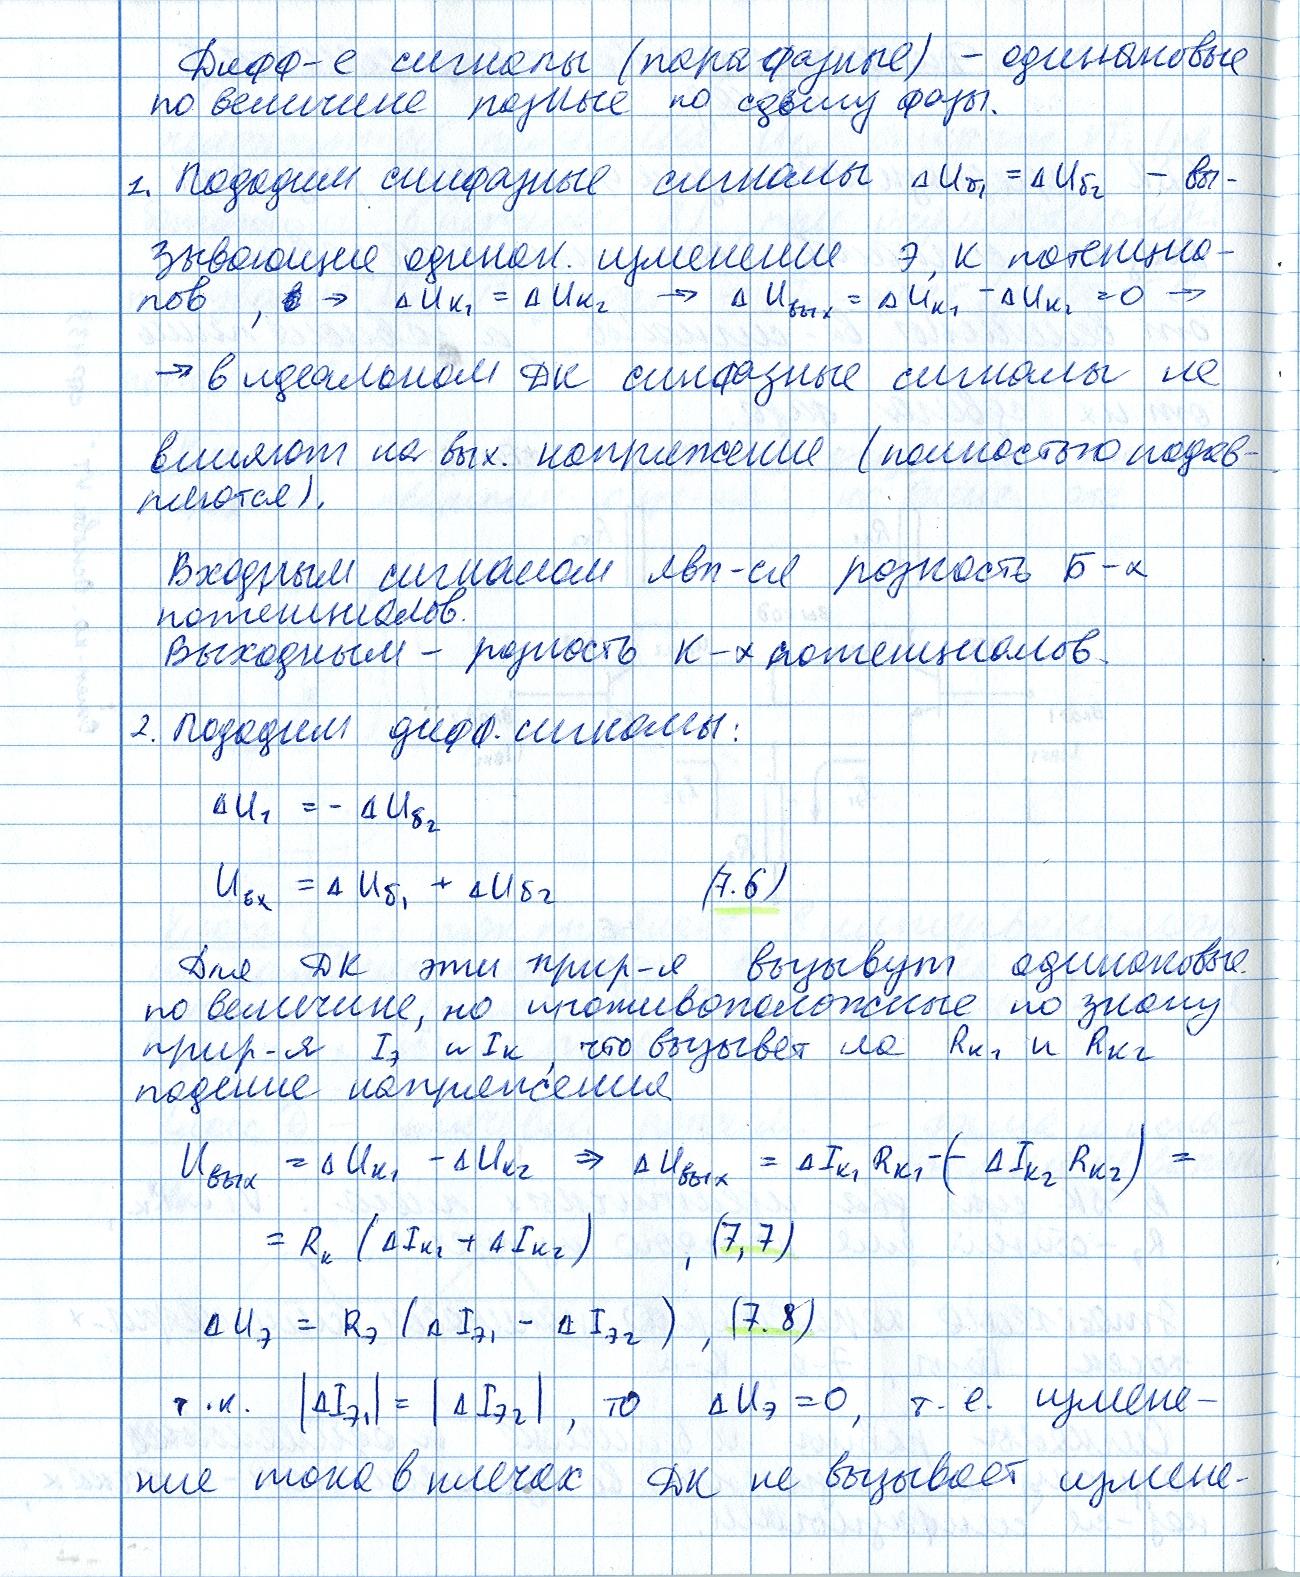 Дифф-е сигналы (парафазные) – одинаковые
по величине разные по сдвигу фазы.
1. Пададим синфазные сигналы ΔUб₁ = ΔUб₂ – вы-
зывающие одинак. изменение Э, К потенциа-
лов, → ΔUк₁ = ΔUк₂ → ΔUвых = ΔUк₁ - ΔUк₂ = 0 →
→ в идеальном ДК синфазные сигналы не
влияют на вых. напряжение (полностью подав-
ляются).
Входным сигналом явл-ся разность Б-х
потенциалов.
Выходным – разность К-х потенциалов.
2. Пададим дифф. сигналы:
ΔU₁ = - ΔUб₂
Uвх = ΔUб₁ + ΔUб₂ (7.6)
Для ДК эти прир-я вызывут одинаковые
по величине, но противоположные по знаку
прир-я Iэ и Iк, что вызывет на Rк₁ и Rк₂
падение напряжения
Uвых = ΔUк₁ - ΔUк₂ ⇒ ΔUвых = ΔIк₁ Rк₁ - (- ΔIк₂ Rк₂) =
= Rк (ΔIк₁ + ΔIк₂) , (7,7)
ΔUэ = Rэ (ΔIэ₁ - ΔIэ₂) , (7.8)
т.к. |ΔIэ₁| = |ΔIэ₂|, то ΔUэ = 0, т.е. измене-
ние тока в плечах ДК не вызывает измене-